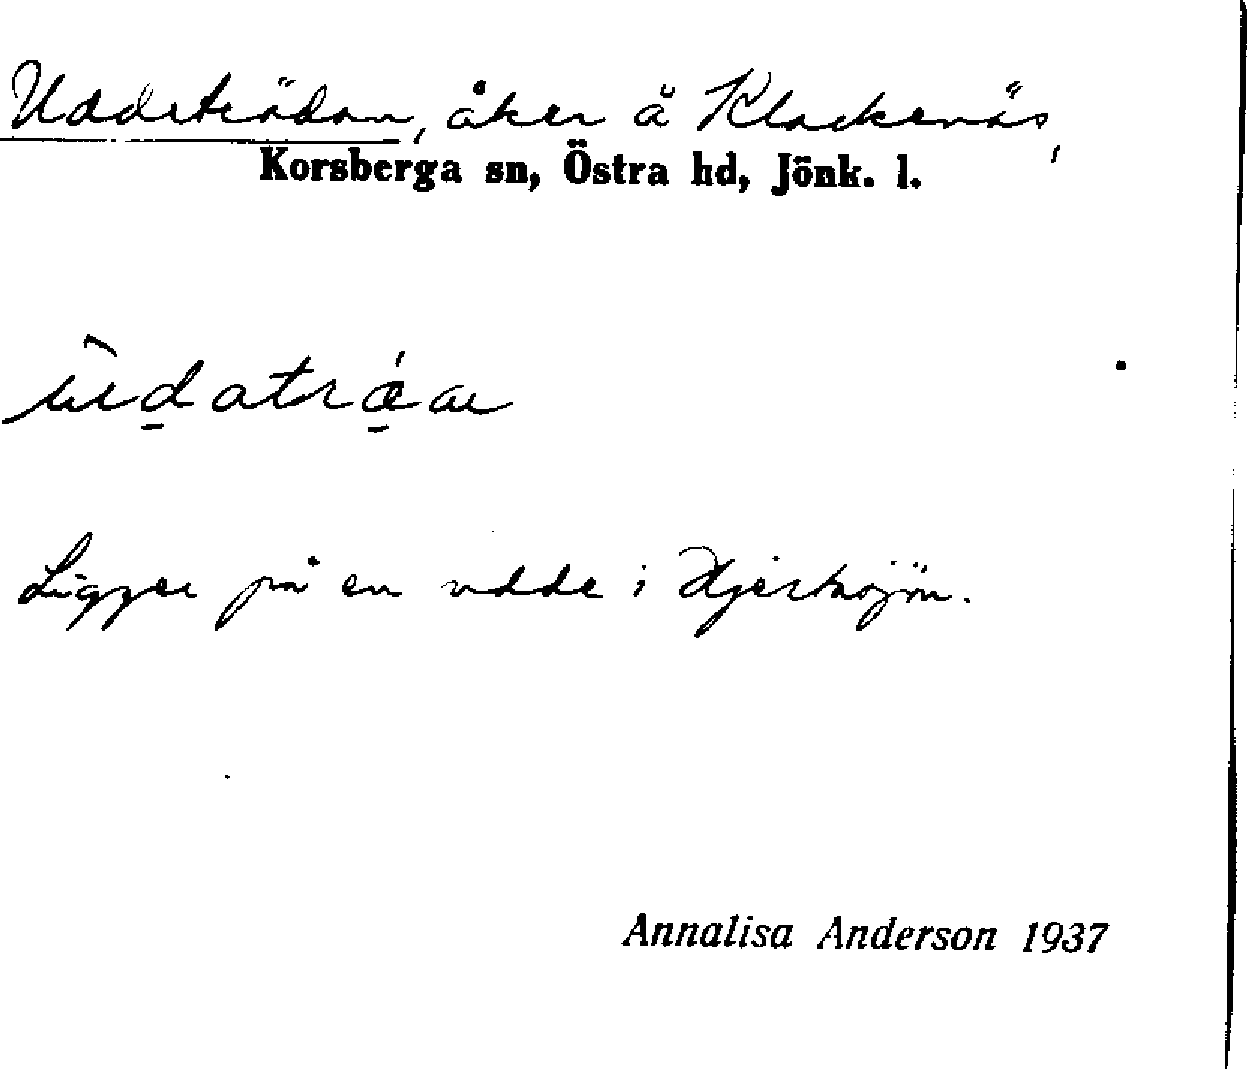 Uddeträdan, åker å Klackenäs,
Korsberga sn, Östra hd, Jönk. l.
Ligger på en udde i
Annalisa Anderson 1937